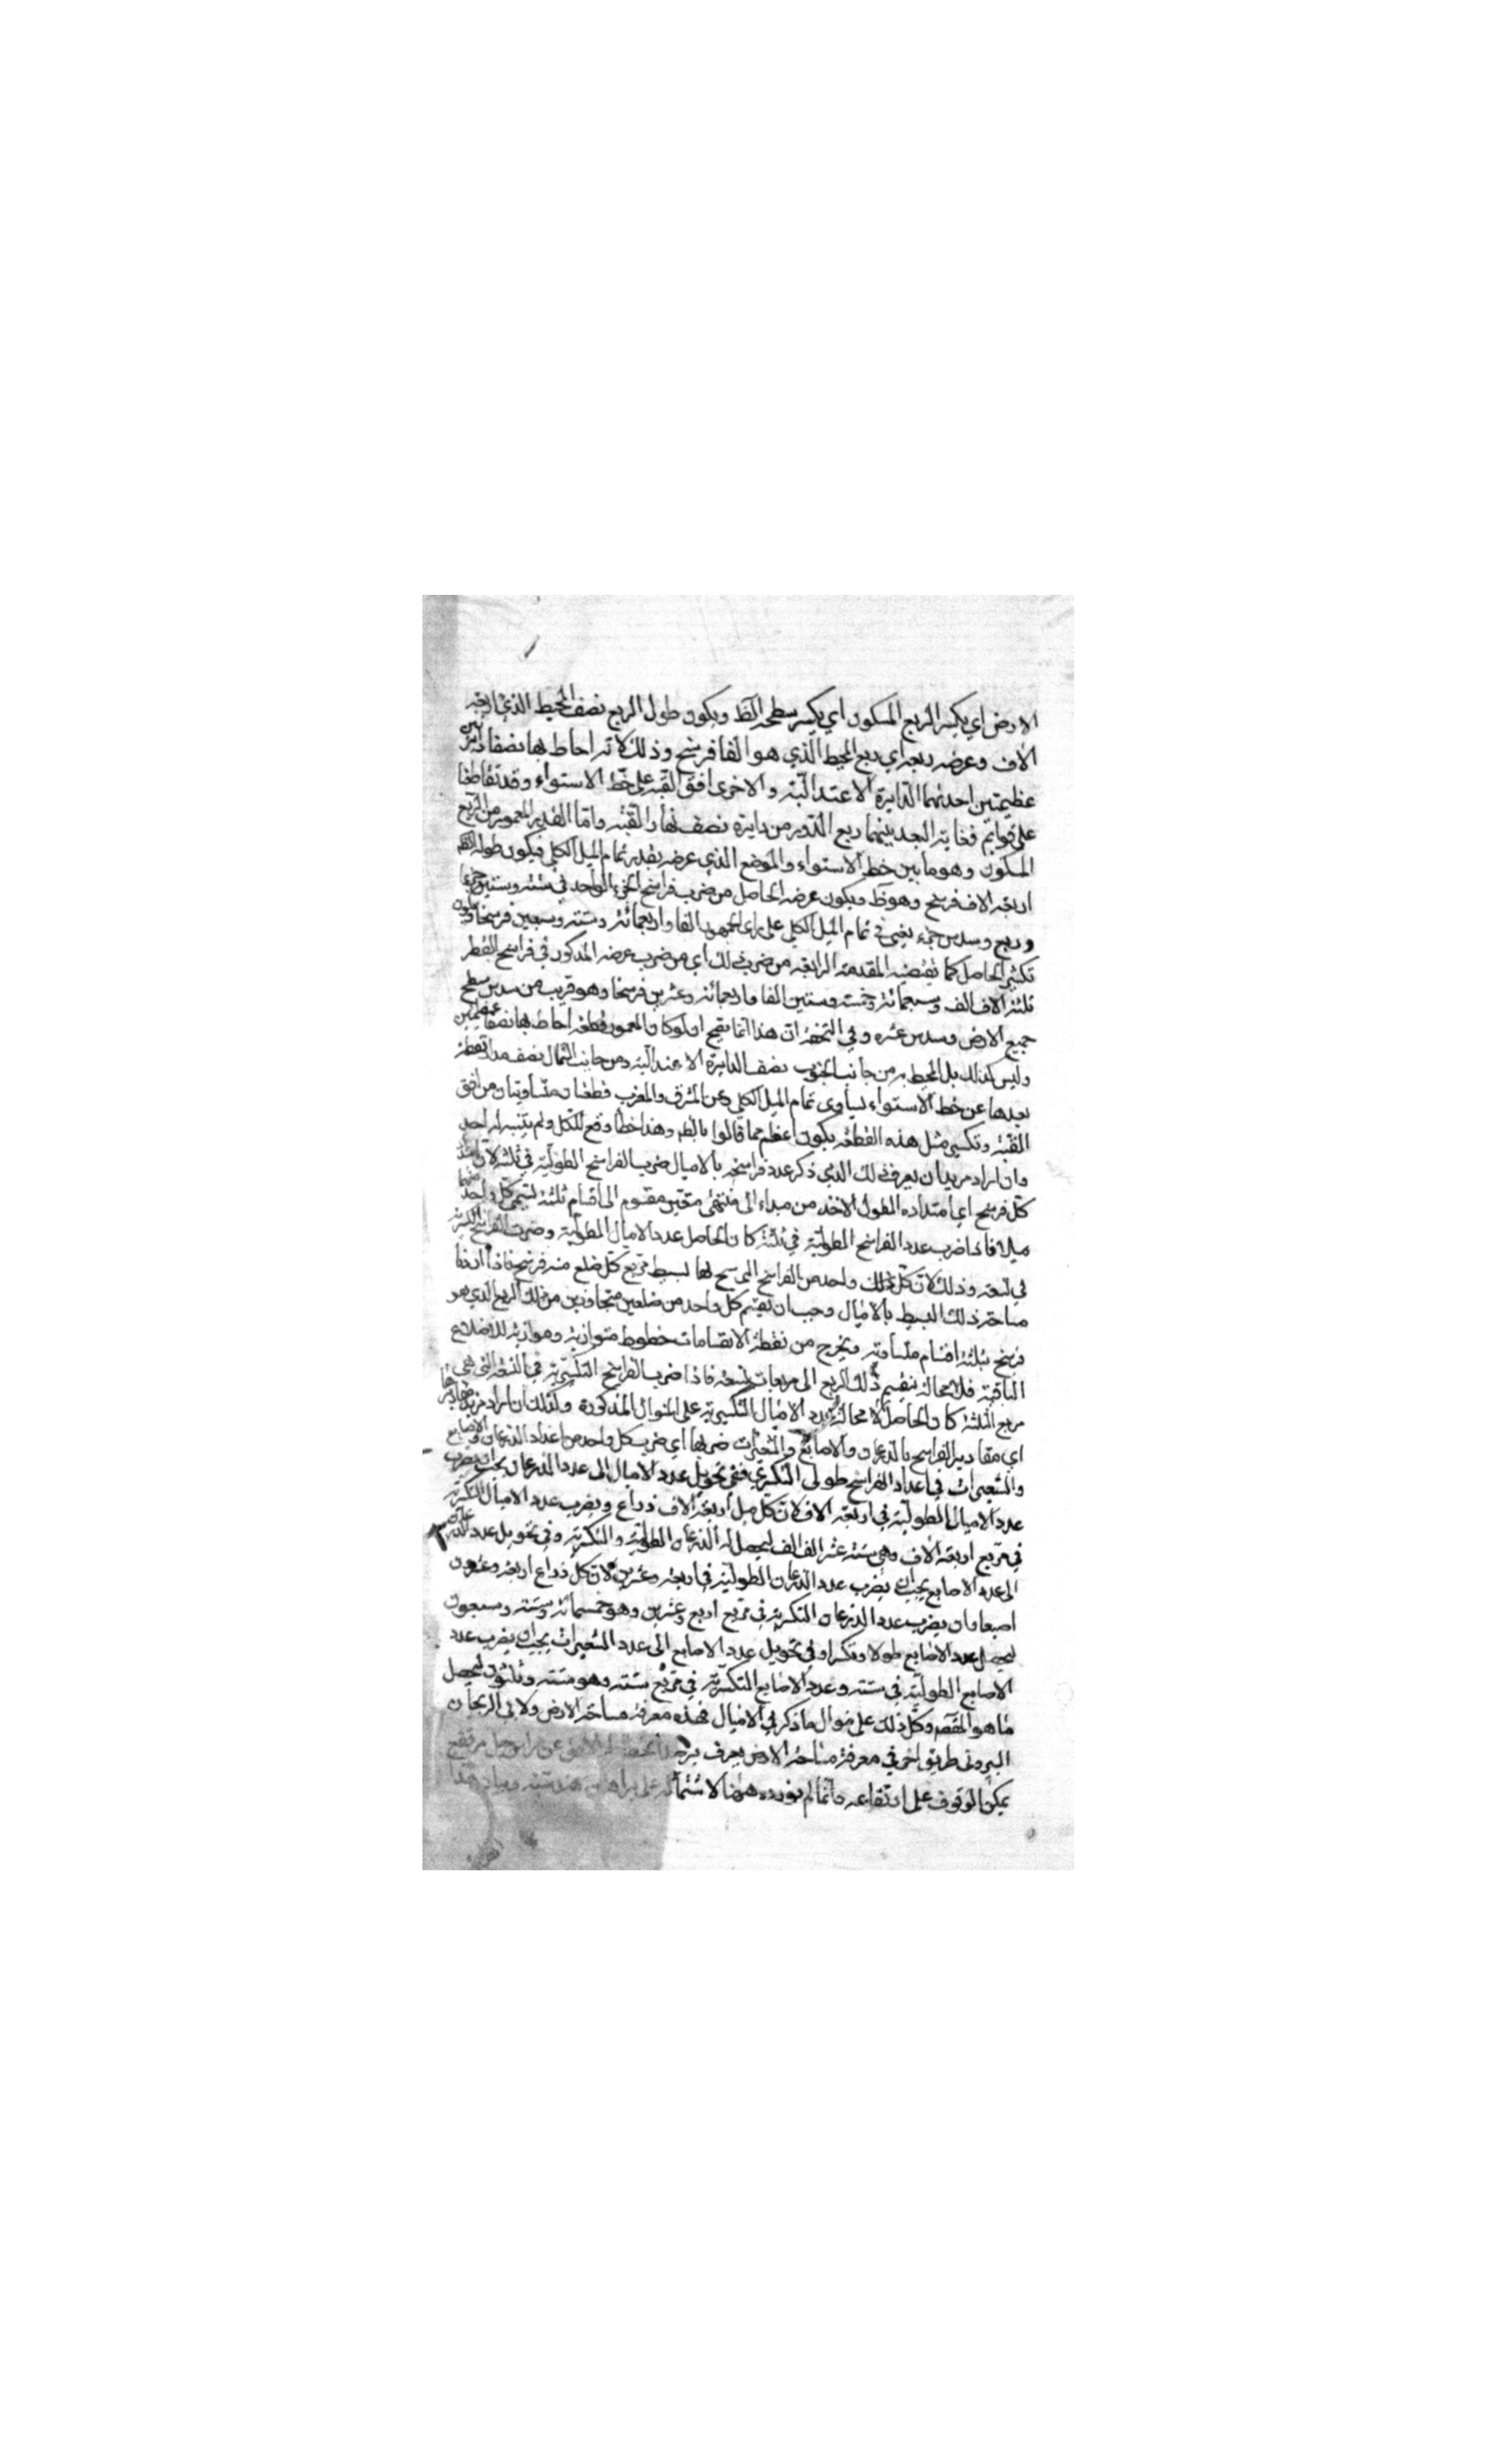 الارض اي يكسر الربع المسكون اي يكسر سطحه الظ ويكون طول الربع نصف المحيط الذي اربعة
الاف وعرضه ربعه اي ربع المحيط الذي هو الفا فرسخ وذلك لانه احاط بها نصفا دايرتين
عظيمتين احديهما الدايرة الاعتدالية والاخرى افق القبة على خط الاستواء وقد تقاطعا
على قوايم فغاية البعد بينهما ربع الدور من دايرة نصف نهار القبة واما القدر المعمور من الربع
المسكون وهو ما بين خط الاستواء والموضع الذي عرضه بقدر تمام الميل الكلي فيكون طوله
اربعة الاف فرسخ وهو ظ ويكون عرضه الحاصل من ضرب فراسخ الجزء الواحد في ستة وستين جزءا
وربع وسدس جزء يعني في تمام الميل الكلي على راى الجمهور الفا واربعمائة وستة وسبعين فرسخا ويكون
تكسير الحاصل كما تقتضيه المقدمة الرابعة من ضرب ذلك اي من ضرب عرضه المذكور في فراسخ القطر
ثلثة الاف الف وسبعمائة وخمسة وستين الفا واربعمائة وعشرين فرسخا وهو قريب من سدس سطح
جميع الارض وسدس عشره وفي التحفة ان هذا انما يصح ان لو كان المعمور قطعة احاط بها نصفا عظيمتين
وليس كذلك بل المحيط به من جانب الجنوب نصف الدايرة الاعتدالية ومن جانب الشمال نصف مدار
بعدها عن خط الاستواء يساوى تمام الميل الكلي وعن المشرق والمغرب قطعتان متساويتان من افق
القبة وتكسير مثل هذه القطعة يكون اعظم مما قالوا بالظ وهذا خطأ وقع للكل ولم يتنبه له احد
وان اراد مريد ان يعرف ذلك الذي ذكر عدد فراسخه بالاميال ضرب الفراسخ الطولية في ثلثة لان
كل فرسخ اي امتداده الطول الاخذ من مبداء الى منتهى معين مقسوم الى اقسام ثلثة يسمى كل واحد منها
ميلا فاذا ضرب عدد الفراسخ الطولية في ثلثة كان الحاصل عدد الاميال الطولية وضرب الفراسخ التكسيرية
في تسعة وذلك لان كل واحد من الفراسخ لها بسيط مربع كل ضلع منه فرسخ فاذا اردنا
مساحة ذلك البسيط بالاميال وجب ان يقسم كل واحد من ضلعين متجاورين من ذلك الربع الذي هو
فرسخ بثلثة اقسام متساوية ويخرج من نقطة الانقسامات خطوط متوازية وموازية للاضلاع
الباقية فلا محالة ينقسم ذلك الربع الى مربعات تسعة فاذا ضرب الفراسخ التكسيرية في التسعة التي هي
مربع الثلثة كان الحاصل لا محالة عدد الاميال التكسيرية على المنوال المذكورة وكذلك ان اراد مريد مقاديرها
اي مقادير الفراسخ بالذرعان والاصابع والشعيرات ضربها اي ضرب كل واحد من اعداد الذرعان والاصابع
والشعيرات في اعداد الفراسخ طولى التكسري ففي تحويل عدد الاميال الى عدد الذرعان يجب ان يضرب
عدد الاميال الطولية في اربعة الاف لان كل ميل اربعة الاف ذراع ويضرب عدد الاميال التكسرية
في مربع اربعة الاف وهي ستة عشر الف الف ليحصل له الذرعان الطولية والتكسرية وفي تحويل عدد الذرعان
الى عدد الاصابع يجب ان يضرب عدد الذرعان الطولية في اربعة وعشرين لان كل ذراع اربعة وعشرون
اصبعا وان يضرب عدد الذرعان التكسرية في مربع اربع وعشرين وهو خمسمائة وستة وسبعون
ليحصل عدد الاصابع طولا وتكسرا وفي تحويل عدد الاصابع الى عدد الشعيرات يجب ان يضرب عدد
الاصابع الطولية في ستة وعدد الاصابع التكسرية في مربع ستة وهو ستة وثلثون ليحصل
ما هو المقصد وكل ذلك على منوال ما ذكر في الاميال فهذه معرفة مساحة الارض ولابي الريحان
البيروني طريق اخر في معرفة مساحة الارض يعرف به الافق عن راس جبل مرتفع
يمكن الوقوف على ارتفاعه وانما لم نورده ههنا لاشتماله على براهين هندسية